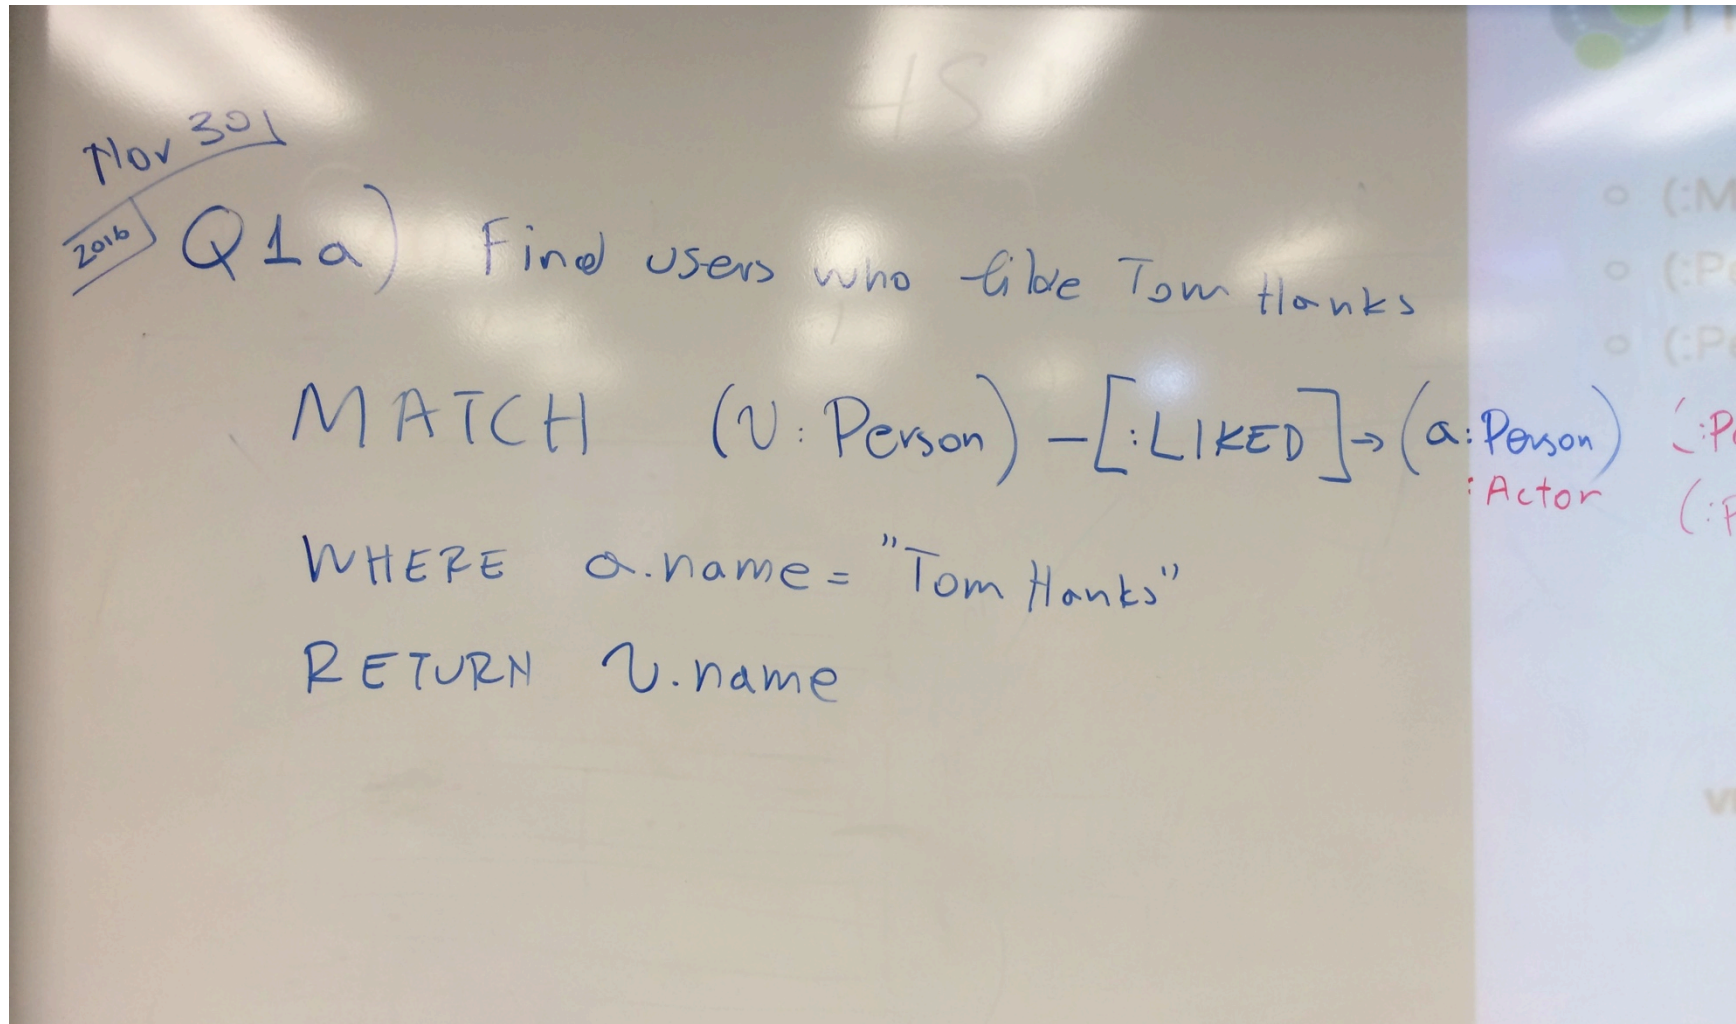 Nov 30
2016
Q1a) Find users who like Tom Hanks
MATCH (U:Person)-[:LIKED]->(a:Person)
:Actor
WHERE a.name = "Tom Hanks"
RETURN U.name
(:M
(:Pe
(:Pe
(:Pe
(:P